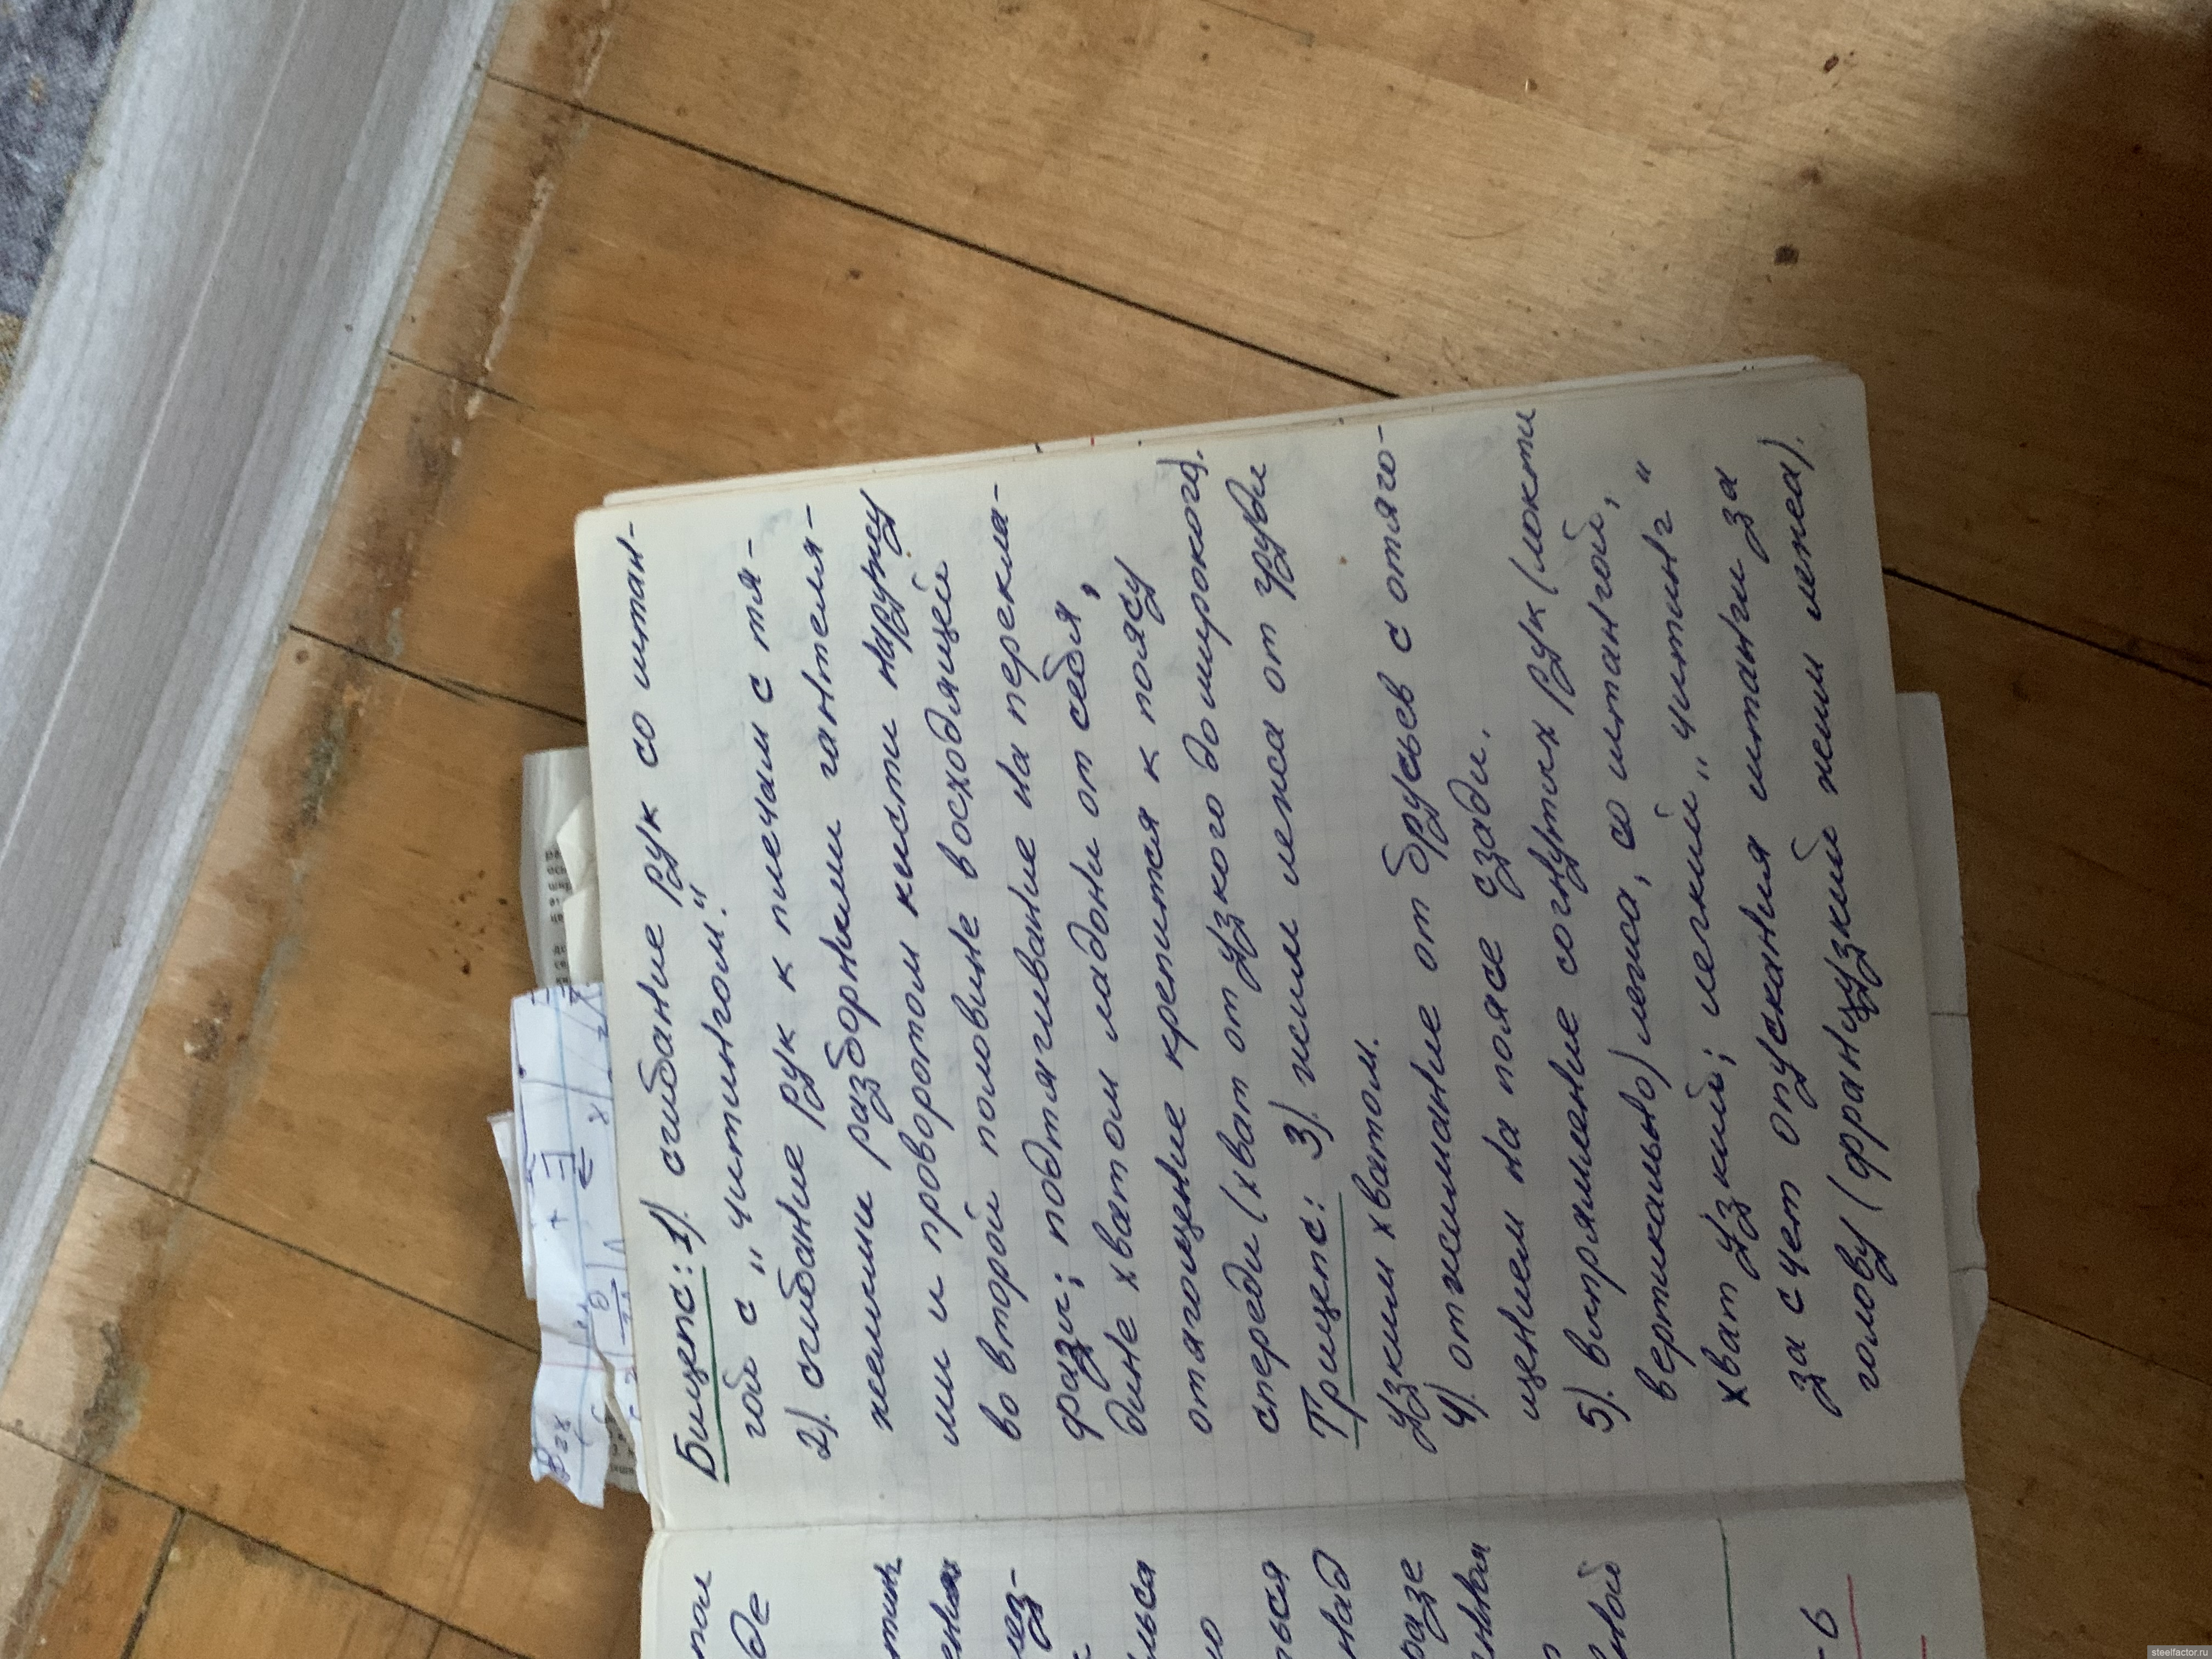 Бицепс: 1). сгибание рук со штан-
гой с „читингом."
2). сгибание рук к плечам с тя-
желыми разборными гантеля-
ми и проворотом кисти наружу
во второй половине восходящей
фазы; подтягивание на перекла-
дине хватом ладони от себя,
отягощение крепится к поясу
спереди (хват от узкого до широкого).
Трицепс: 3). жим лежа от груди
узким хватом.
4). отжимание от брусьев с отяго-
щением на поясе сзади.
5). выпрямление согнутых рук (локти
вертикально) лежа, со штангой,
хват узкий; легкий „читинг"
за счет опускания штанги за
голову (французкий жим лежа).
де
ез-
ться
над
разе
новой
steelfactor.ru